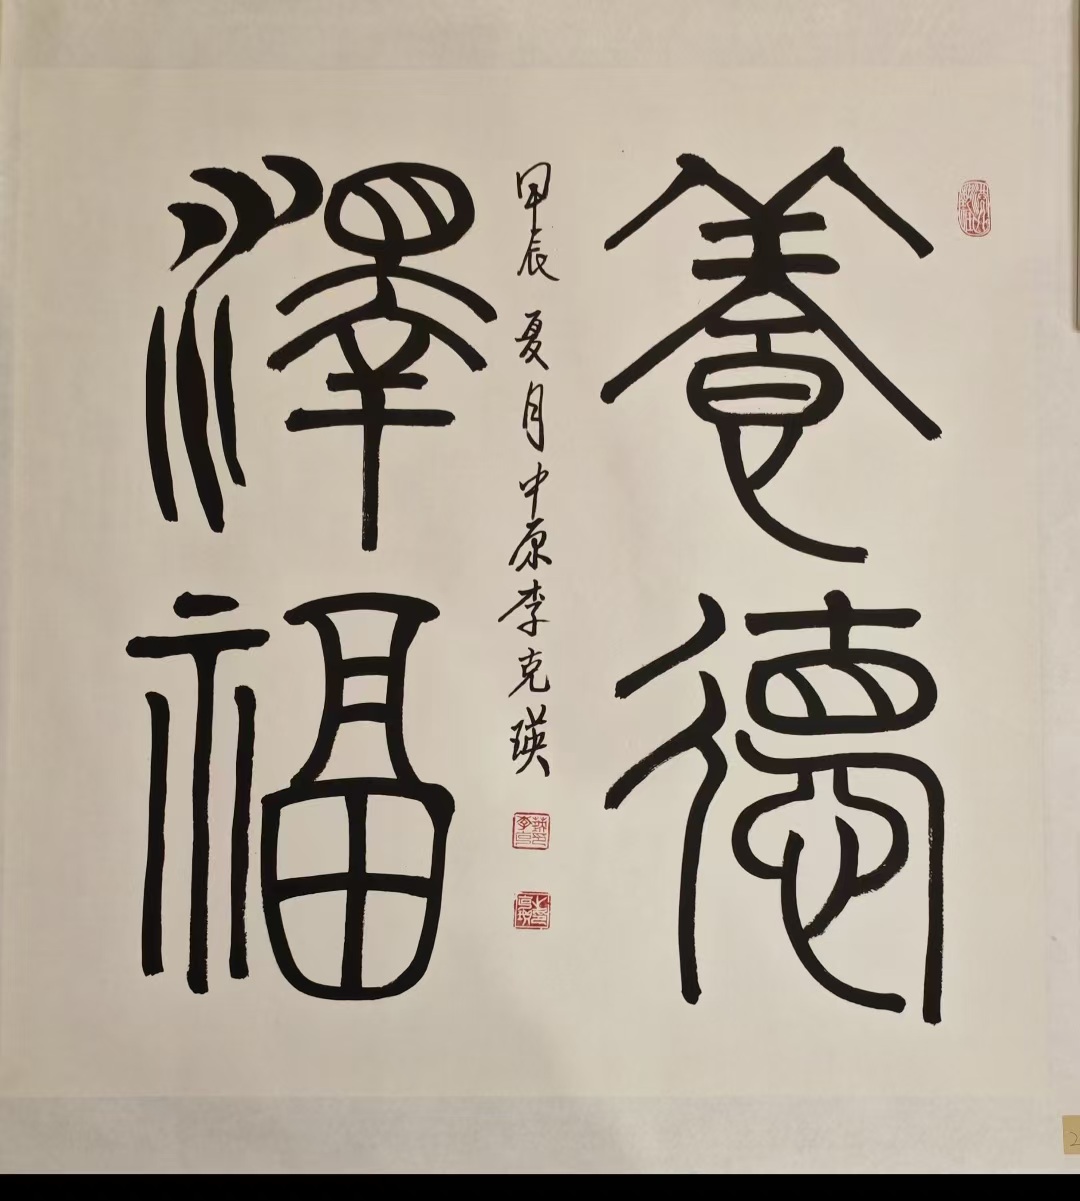 養德
澤福
甲辰夏月中原李克瑛
2